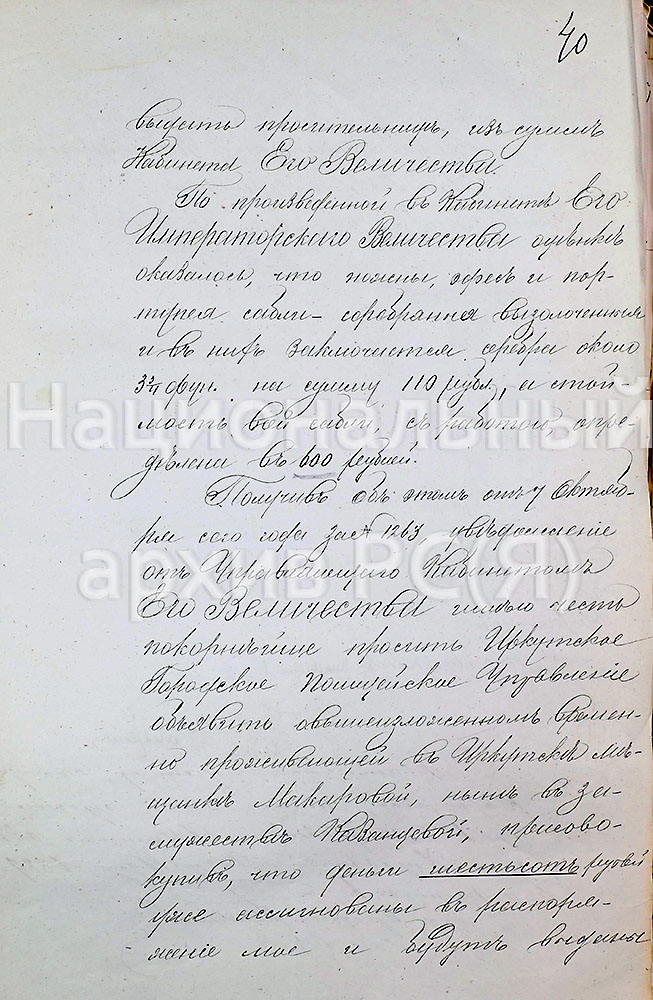 40
выдать просительницѣ, изъ суммъ
Кабинета Его Величества.
По произведенной въ Кабинетѣ Его
Императорскаго Величества оцѣнкѣ
оказалось, что ножны, эфесъ и пор-
тупея сабли – серебряныя вызолоченныя
и въ нихъ заключается серебра около
3¾ фун. на сумму 110 рубл., а стои-
мость всей сабли, съ работой, опре-
дѣлена въ 600 рублей.
Получивъ объ этомъ отъ 7 Октяб-
ря сего года за № 1263 увѣдомленіе
отъ Управляющаго Кабинетомъ
Его Величества имѣю честь
покорнѣйше просить Иркутское
Городское Полицейское Управленіе
объявить о вышеизложенномъ времен-
но проживающей въ Иркутскѣ мѣ-
щанкѣ Макаровой, нынѣ въ за-
мужествѣ Казанцевой, присово-
купивъ, что деньги шестьсотъ рублей
уже ассигнованы въ распоря-
женіе мое и будутъ выданы
Национальный
архив РС(Я)